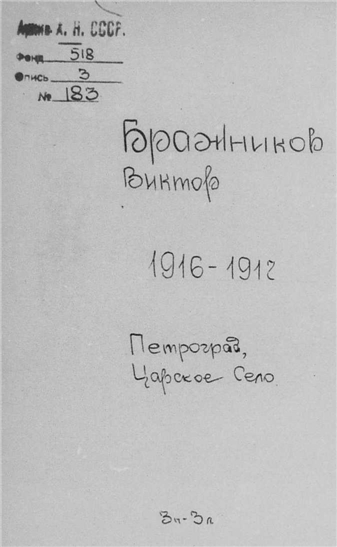 Архив А. Н. СССР.
Фонд 518
Опись 3
№ 183
Бражников
Виктор
1916-1917
Петроград,
Царское Село
3п-3л